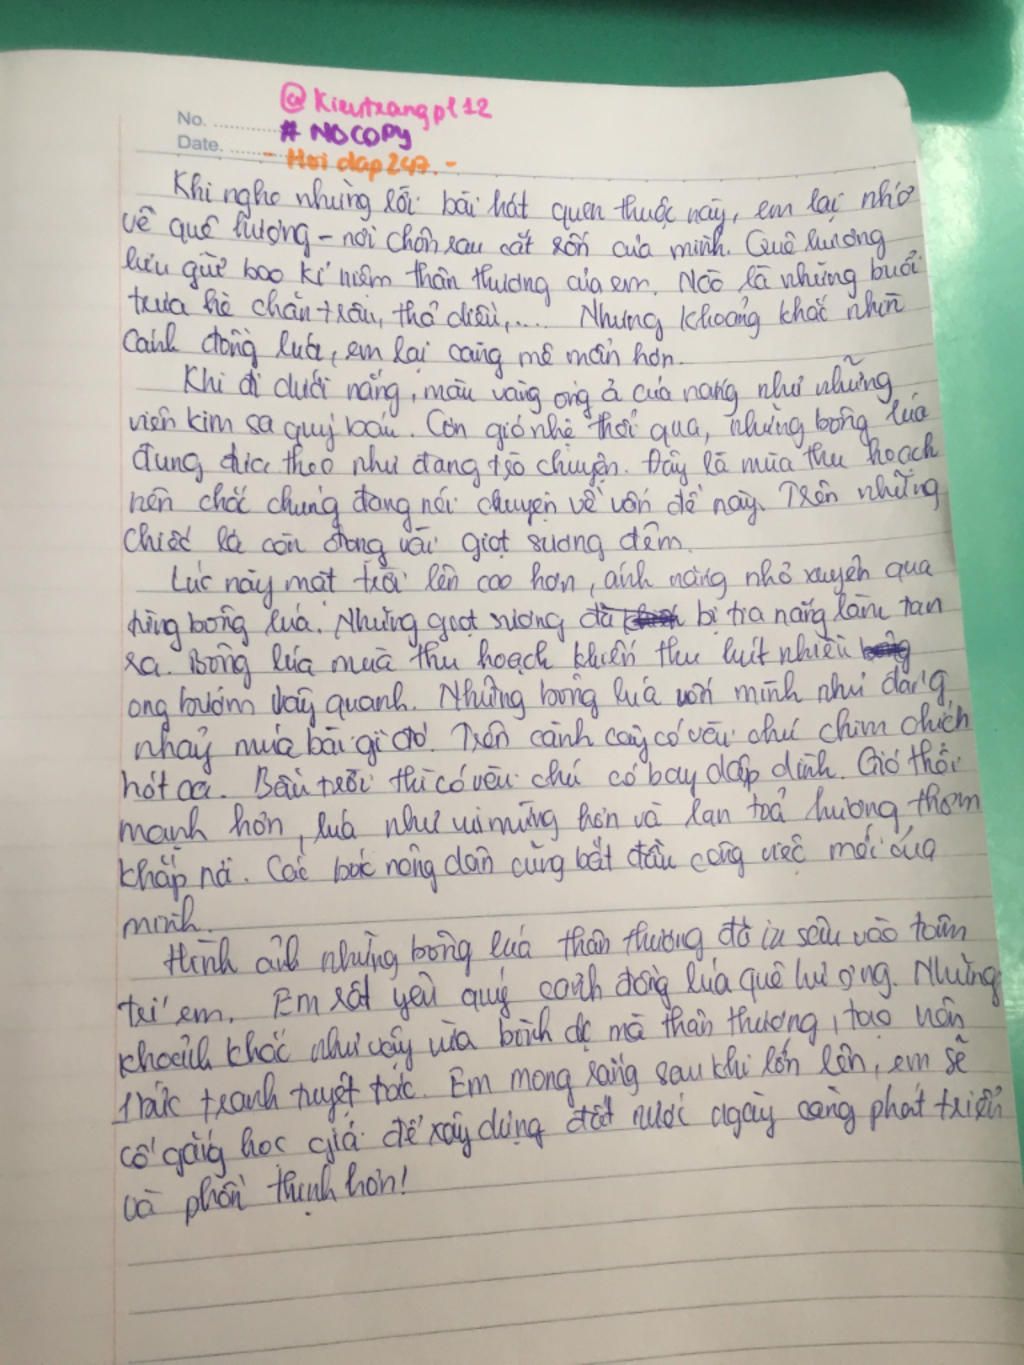 @Kieutrangpl12
No. # NOCOPY
Date. - Hoi dap 247. -
Khi nghe những lời bài hát quen thuộc này, em lại nhớ
về quê hương - nơi chôn rau cắt rốn của mình. Quê hương
lưu giữ bao kỉ niệm thân thương của em. Nào là những buổi
trưa hè chăn trâu, thả diều,.... Nhưng khoảng khắc nhìn
cánh đồng lúa, em lại càng mê mẩn hơn.
Khi đi dưới nắng, màu vàng óng ả của nắng như những
viên kim sa quý báu. Cơn gió nhẹ thổi qua, những bông lúa
đung đưa theo như đang trò chuyện. Đây là mùa thu hoạch
nên chắc chúng đang nói chuyện về vấn đề này. Trên những
chiếc lá còn đọng vài giọt sương đêm.
Lúc này mặt trời lên cao hơn, ánh nắng nhỏ xuyên qua
từng bông lúa. Những giọt sương đã bị tia nắng làm tan
ra. Bông lúa mùa thu hoạch khiến thu hút nhiều
ong bướm vây quanh. Những bông lúa uốn mình như đang
nhảy múa bài gì đó. Trên cành cây có vài chú chim chích
hót ca. Bầu trời thì có vài chú cò bay dập dình. Gió thổi
mạnh hơn, lúa như vui mừng hơn và lan toả hương thơm
khắp nơi. Các bác nông dân cũng bắt đầu công việc mới của
mình.
Hình ảnh những bông lúa thân thương đã in sâu vào tâm
trí em. Em rất yêu quý cánh đồng lúa quê hương. Những
khoảnh khắc như vậy vừa bình dị mà thân thương, tạo nên
bức tranh tuyệt tác. Em mong rằng sau khi lớn lên, em sẽ
cố gắng học giỏi để xây dựng đất nước ngày càng phát triển
và phồn thịnh hơn!